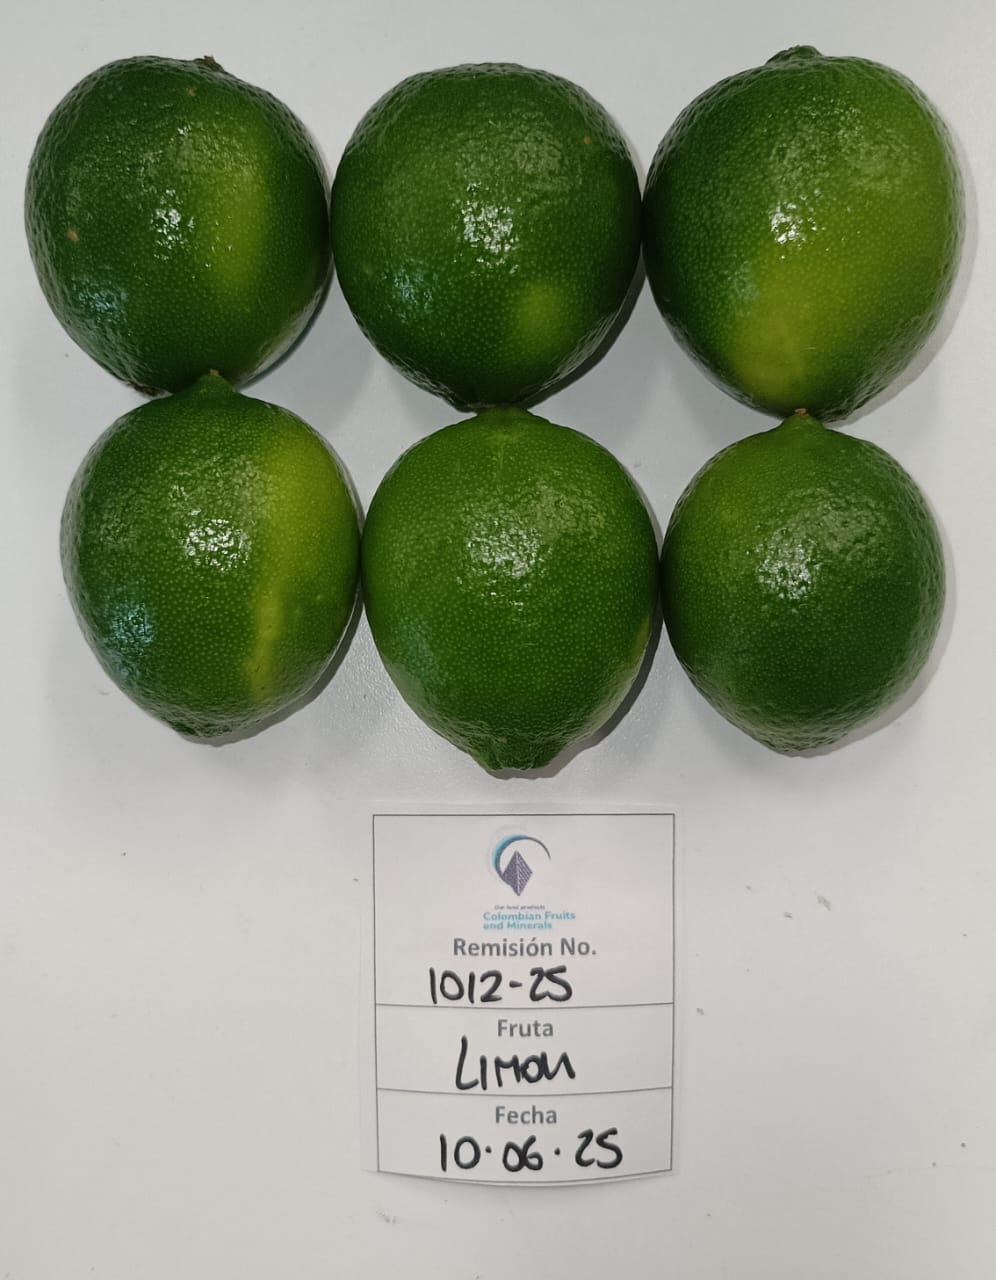 Our land products
Colombian Fruits
and Minerals
Remisión No.
1012-25
Fruta
LIMON
Fecha
10.06.25